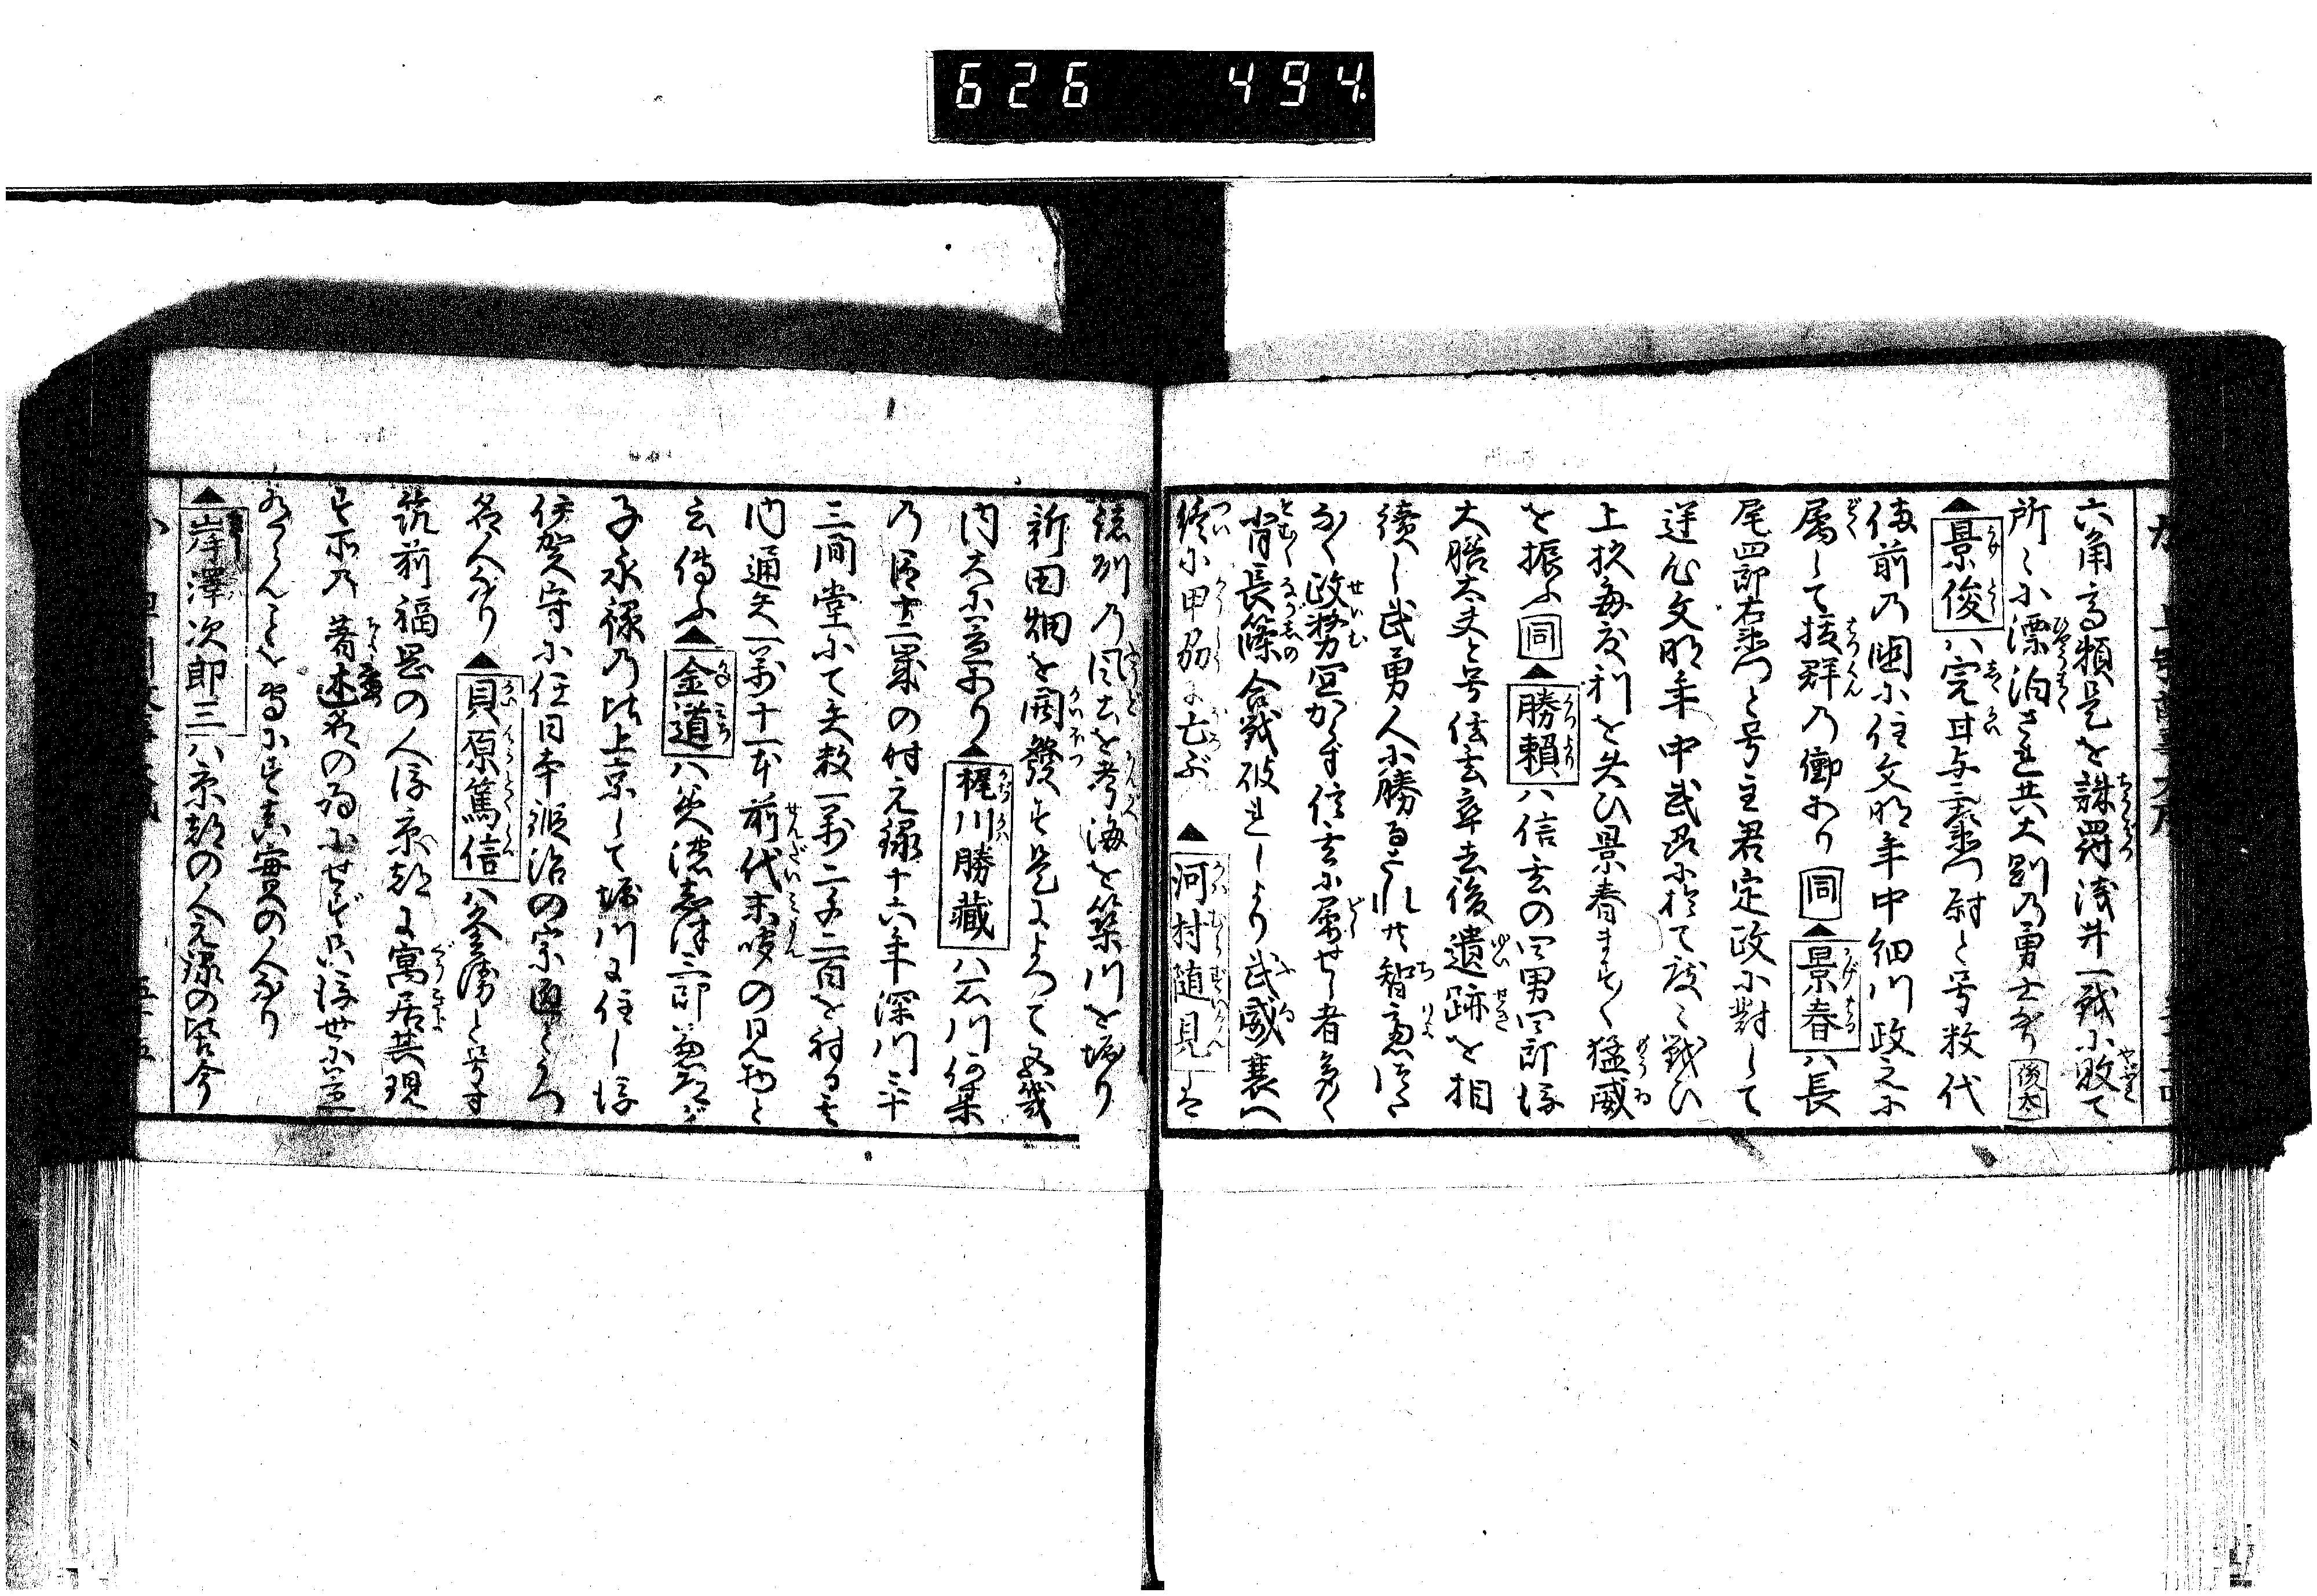 626 494
六角高頼是を誅罸浅井一戦に敗て
所々に漂泊され共大剛の勇士也
▲景俊ハ完甘与三左衛門尉と号数代
備前の国に住文明年中細川政元に
属して抜群の働あり 同▲景春ハ長
尾四郎右衛門と号主君定政に對して
逆心文明年中武州に於て度々戦ひ
上杦毎度利を失ひ景春ます〳〵猛威
を振ふ同▲勝頼ハ信玄の四男四郎後
大膳太夫と号信玄卒去後遺跡を相
續し武勇人に勝るされ共智慮浅
く政務宜からず信玄に属せし者多く
背長篠合戦破れしより武威衰へ
終に甲州に亡ぶ ▲河村随見は
諸州の風土を考海を築川を堀り
新田畑を開發す是によつて
内大に益あり▲梶川勝藏ハ石川何某
の臣十二歳の時元禄十六年深川三十
三間堂にて矢数一万二千二百を射る其
内通矢一万十一本前代未聞の見物と
云傳ふ▲金道ハ美濃志津三郎兼氏が
子永禄の比上京して堀川に住し後
伊賀守に任日本鍛冶の宗匠
名人なり▲貝原篤信ハ久兵衛と号す
筑前福岡の人後京都に寓居其現
す所の著述名の為にせず只後世に益
あらんことを専にす真実の人なり
▲岸澤次郎三ハ京都の人元禄の比今